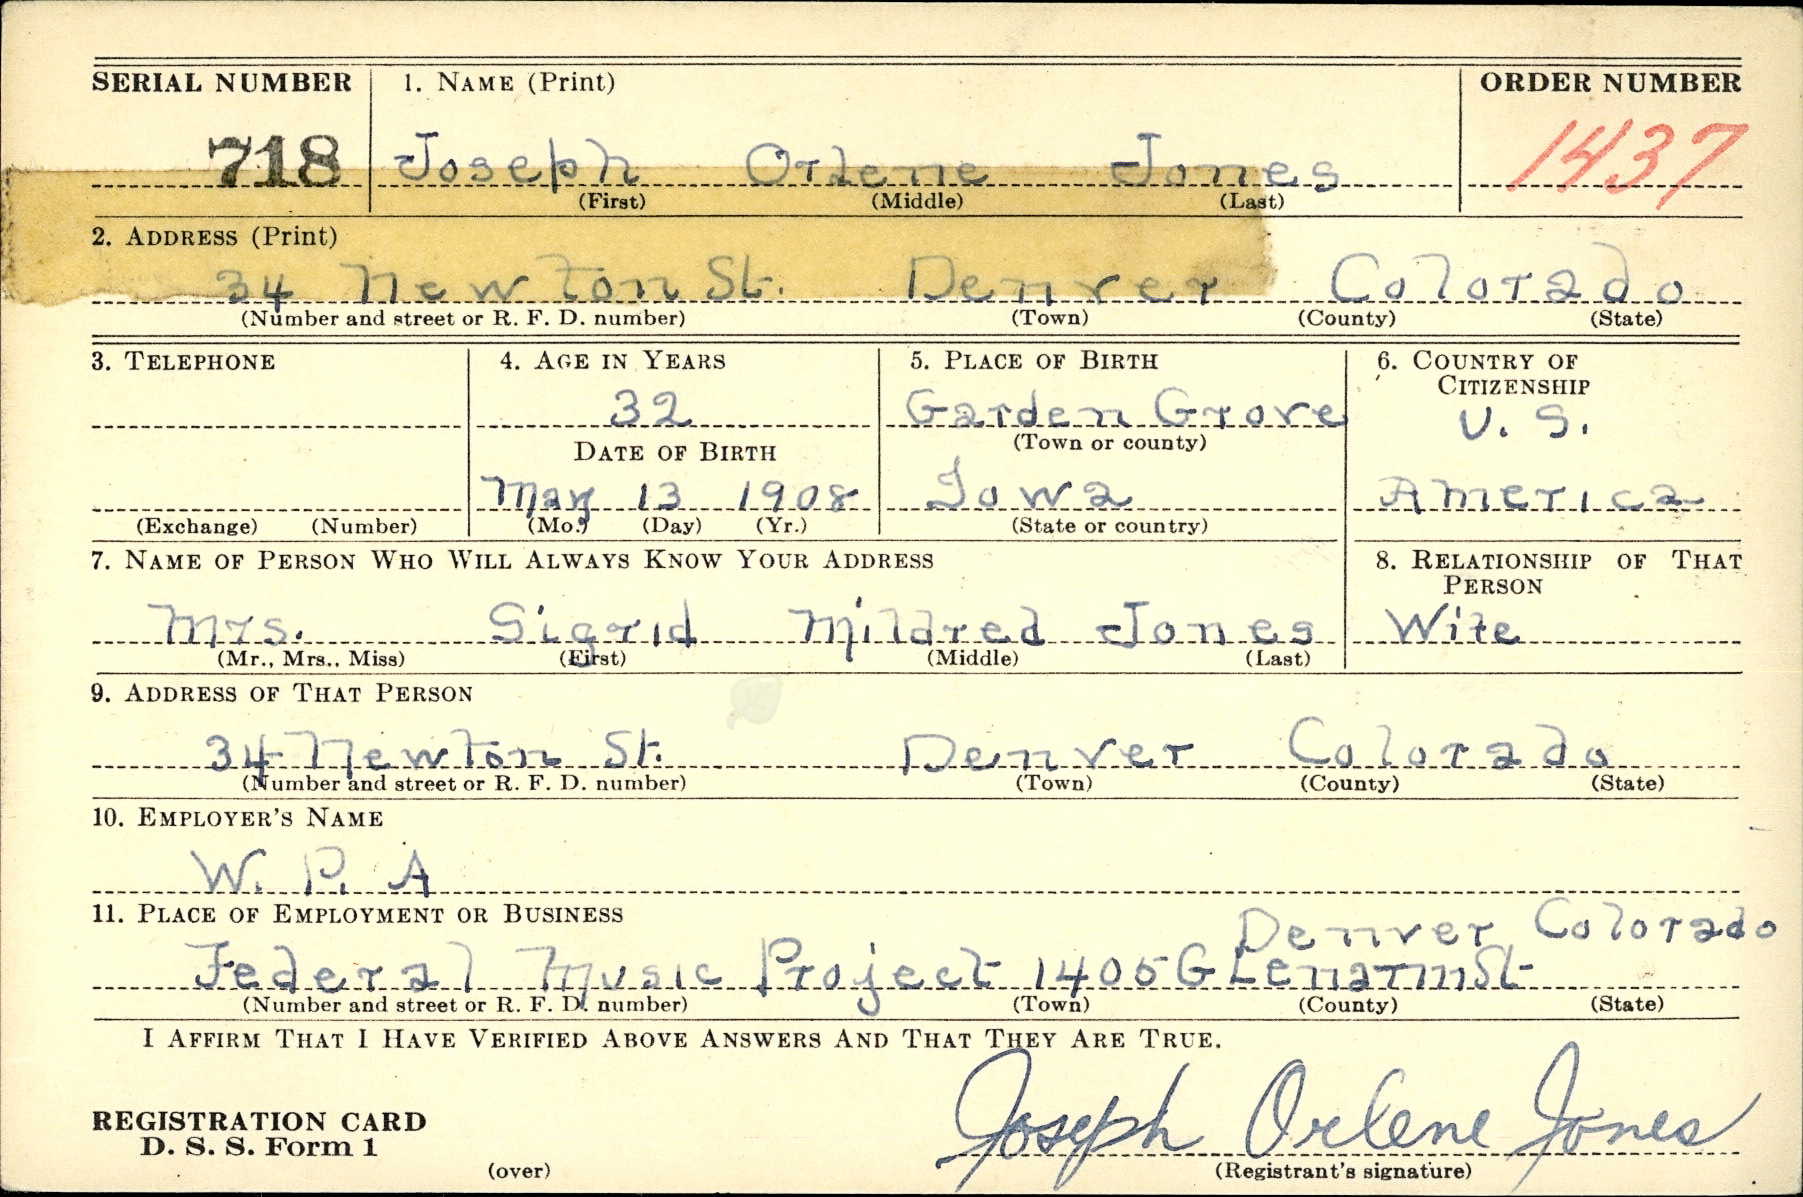 SERIAL NUMBER 1. NAME (Print) ORDER NUMBER
718 Joseph Orlene Jones 1437
(First) (Middle) (Last)
2. ADDRESS (Print)
34 Newton St. Denver Colorado
(Number and street or R. F. D. number) (Town) (County) (State)
3. TELEPHONE 4. AGE IN YEARS 5. PLACE OF BIRTH 6. COUNTRY OF
CITIZENSHIP
32 Garden Grove U. S.
(Town or county)
DATE OF BIRTH
May 13 1908 Iowa America
(Exchange) (Number) (Mo.) (Day) (Yr.) (State or country)
7. NAME OF PERSON WHO WILL ALWAYS KNOW YOUR ADDRESS 8. RELATIONSHIP OF THAT
PERSON
Mrs. Sigrid Mildred Jones Wife
(Mr., Mrs., Miss) (First) (Middle) (Last)
9. ADDRESS OF THAT PERSON
34 Newton St. Denver Colorado
(Number and street or R. F. D. number) (Town) (County) (State)
10. EMPLOYER'S NAME
W. P. A
11. PLACE OF EMPLOYMENT OR BUSINESS
Denver Colorado
Federal Music Project 1405 GLenarm St
(Number and street or R. F. D. number) (Town) (County) (State)
I AFFIRM THAT I HAVE VERIFIED ABOVE ANSWERS AND THAT THEY ARE TRUE.
REGISTRATION CARD
D. S. S. Form 1
Joseph Orlene Jones
(over) (Registrant's signature)